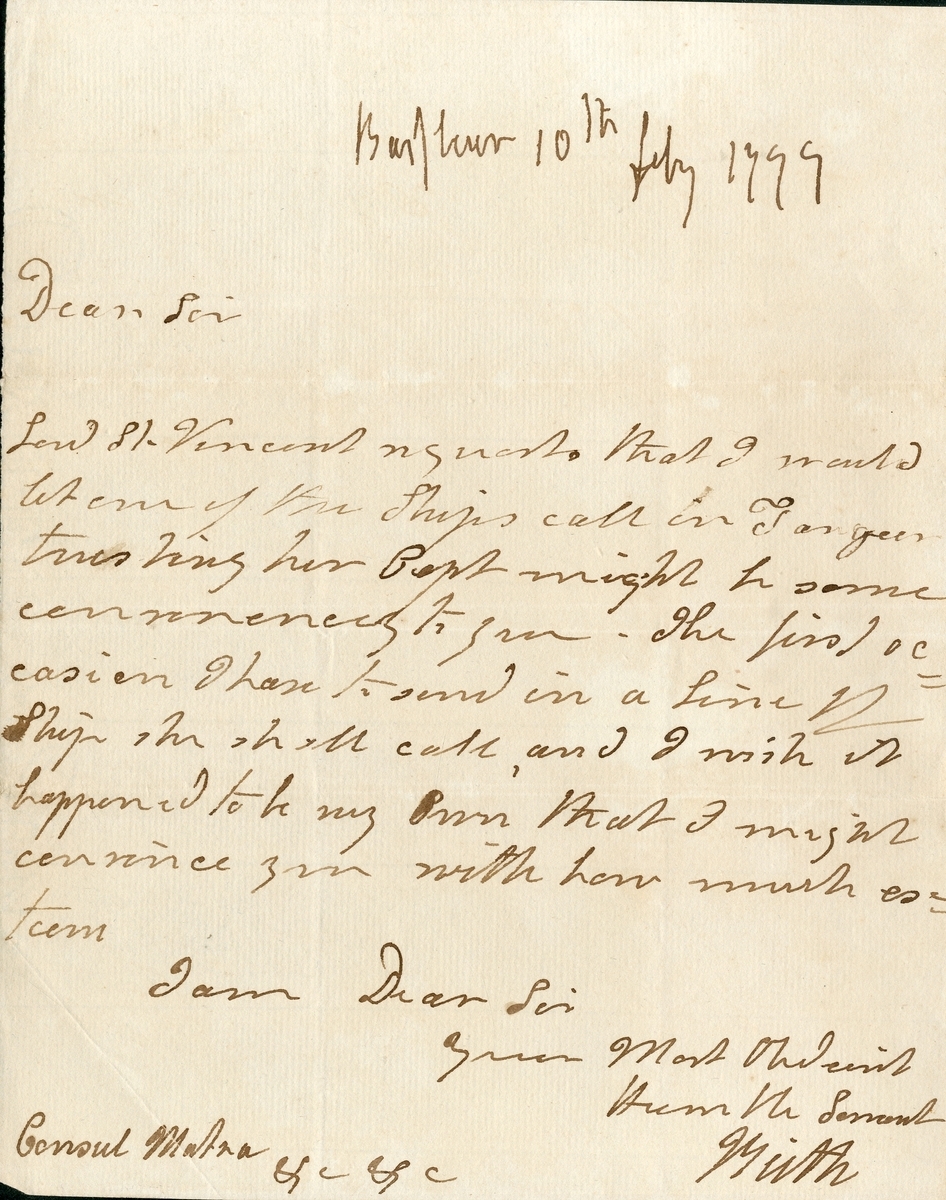 Barfleur 10th feby 1799
Dear Sir
Lord St. Vincent requests that I would
let one of the Ships call in Tangeer
trusting her Capt might be some
convenency to you - The first oc=
casion I have to send in a Line of
Ship she shall call, and I wish it
happened to be my Own that I might
convince you with how much es=
teem
I am Dear Sir
your Most Obedient
Humble Servant
Keith
Consul Matra
&c &c